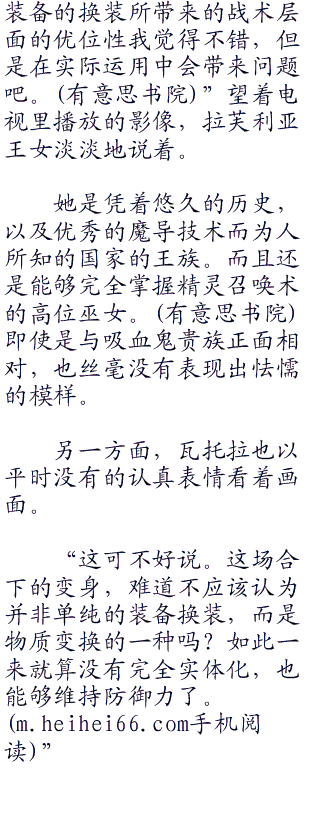 装备的换装所带来的战术层
面的优位性我觉得不错，但
是在实际运用中会带来问题
吧。(有意思书院)”望着电
视里播放的影像，拉芙利亚
王女淡淡地说着。
她是凭着悠久的历史，
以及优秀的魔导技术而为人
所知的国家的王族。而且还
是能够完全掌握精灵召唤术
的高位巫女。(有意思书院)
即使是与吸血鬼贵族正面相
对，也丝毫没有表现出怯懦
的模样。
另一方面，瓦托拉也以
平时没有的认真表情看着画
面。
“这可不好说。这场合
下的变身，难道不应该认为
并非单纯的装备换装，而是
物质变换的一种吗？如此一
来就算没有完全实体化，也
能够维持防御力了。
(m.heihei66.com手机阅
读)”